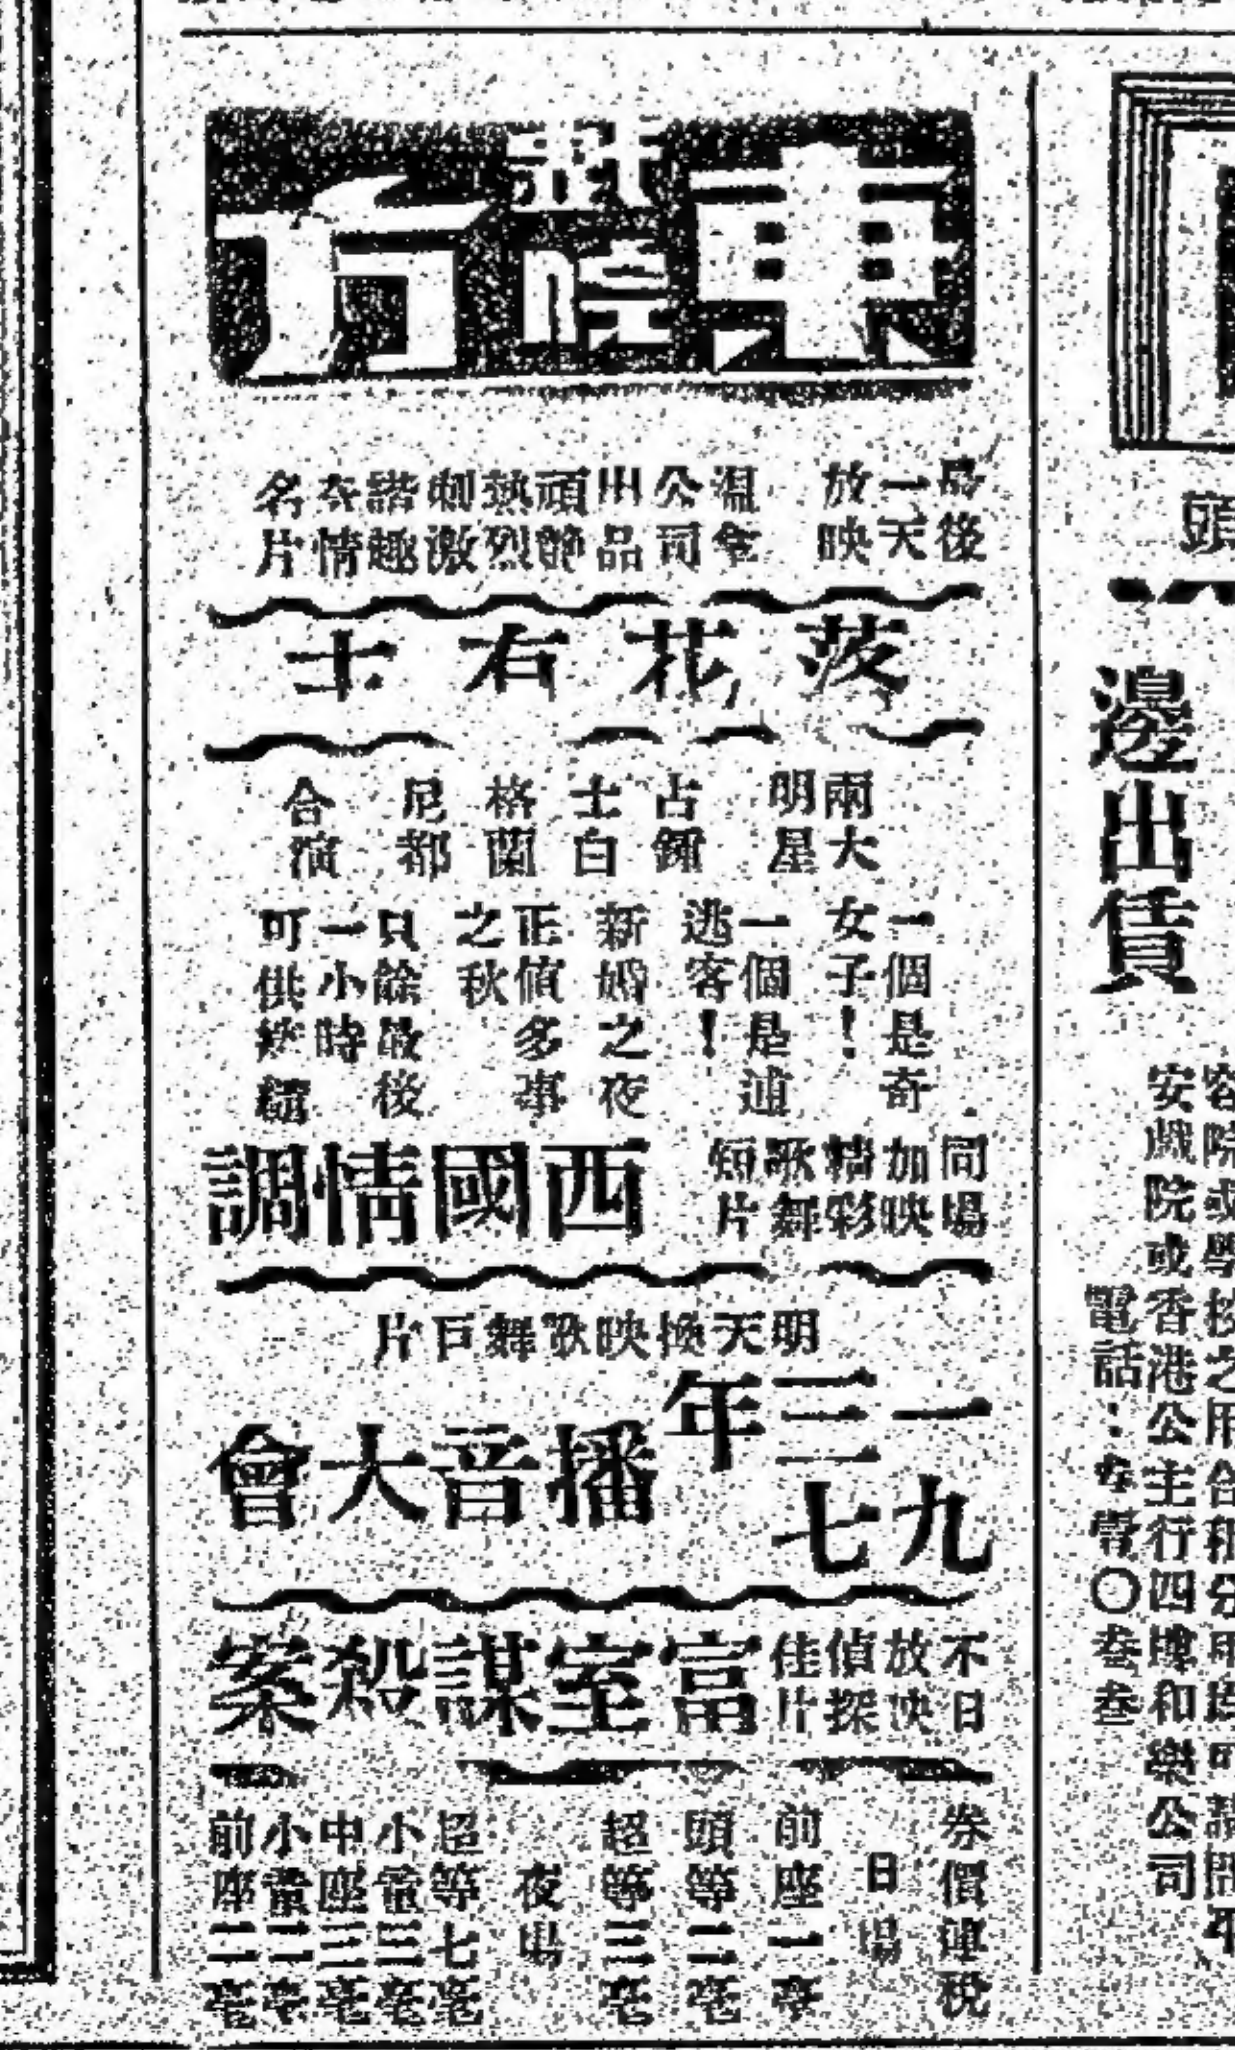 東方
戲院
最後
一天
放映
温拿
公司
出品
頑艷
熱烈
刺激
諧趣
奇情
名片
落花有主
兩大
明星
占
士白
格蘭
尼都
合演
一個是奇
女子！
一個是逋
逃客！
新婚之夜
正值多事
之秋
只餘最後
一小時
可供
同場
加映
精彩
歌舞
短片
西國情調
明天換映歌舞巨片
一九
三七
年
播音大會
不日
放映
偵探
佳片
富室謀殺案
券價連稅
日場
前座一毫
頭等二毫
超等三毫
夜場
超等七毫
小童三毫
中座三毫
小童二毫
前座二毫
頭
邊出賃
安戲院或香港公主行四樓和樂公司
電話：〇叁叁